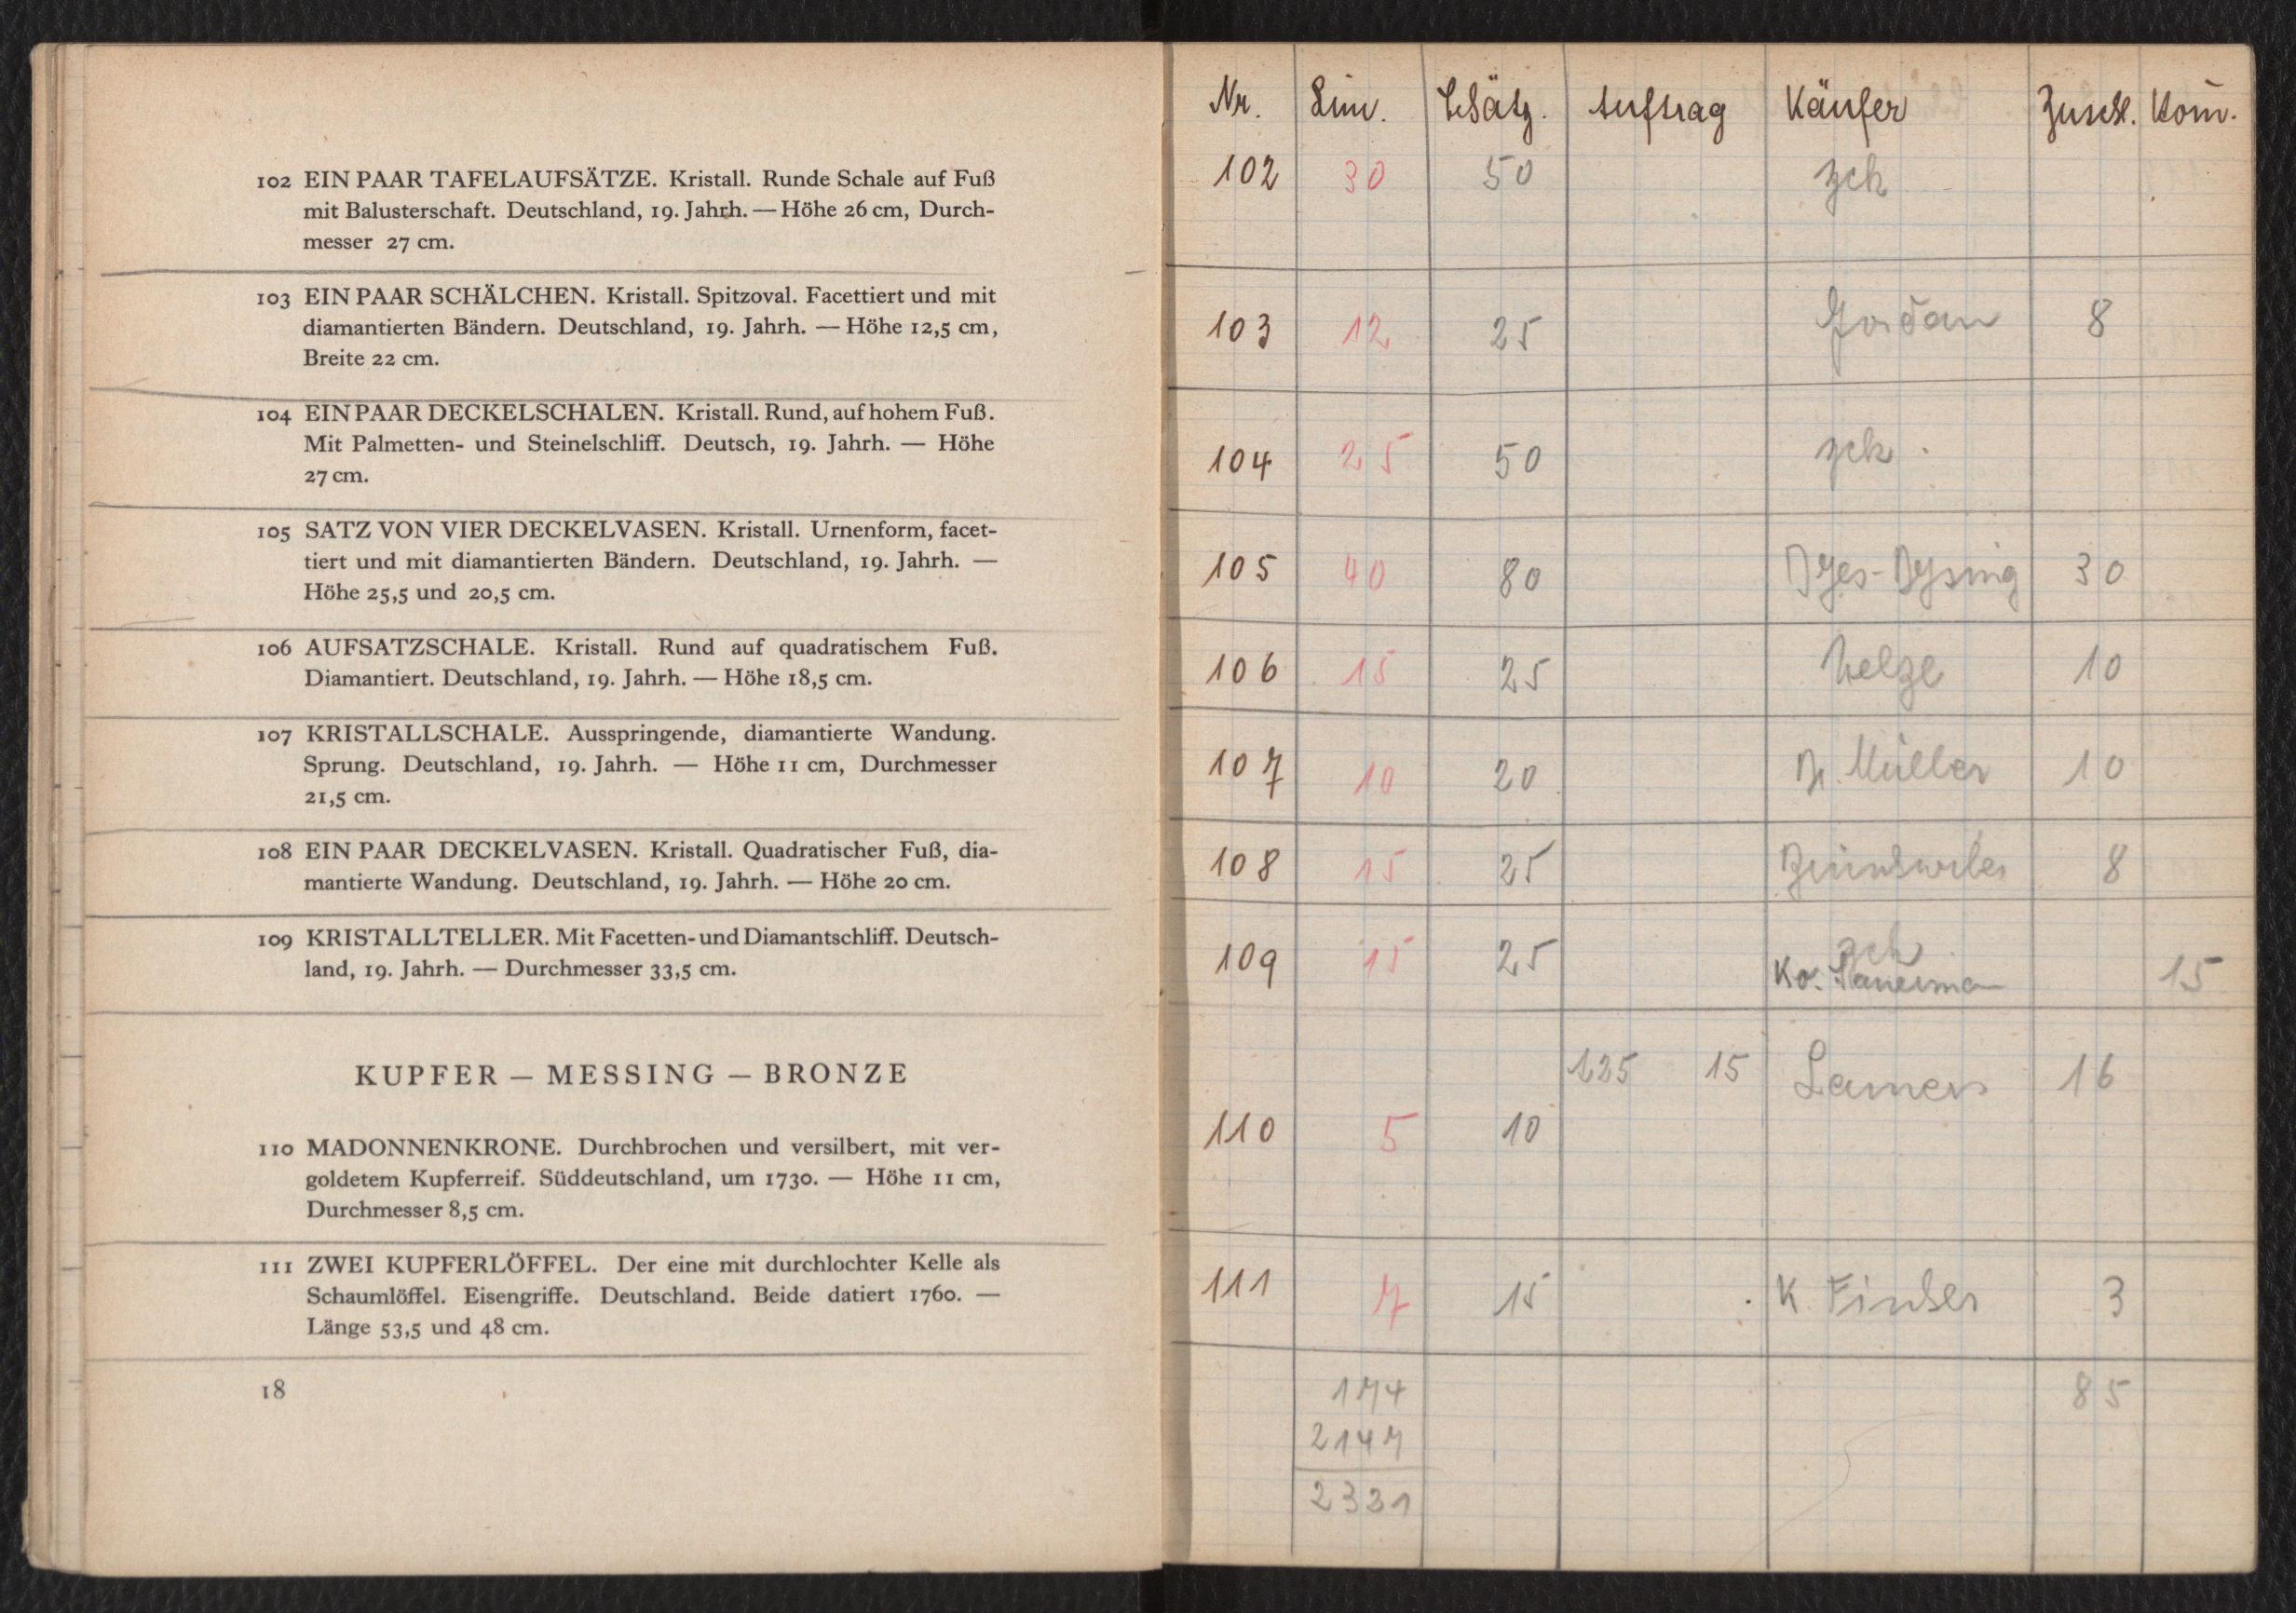 102 EIN PAAR TAFELAUFSÄTZE. Kristall. Runde Schale auf Fuß
mit Balusterschaft. Deutschland, 19. Jahrh. — Höhe 26 cm, Durch-
messer 27 cm.
103 EIN PAAR SCHÄLCHEN. Kristall. Spitzoval. Facettiert und mit
diamantierten Bändern. Deutschland, 19. Jahrh. — Höhe 12,5 cm,
Breite 22 cm.
104 EIN PAAR DECKELSCHALEN. Kristall. Rund, auf hohem Fuß.
Mit Palmetten- und Steinelschliff. Deutsch, 19. Jahrh. — Höhe
27 cm.
105 SATZ VON VIER DECKELVASEN. Kristall. Urnenform, facet-
tiert und mit diamantierten Bändern. Deutschland, 19. Jahrh. —
Höhe 25,5 und 20,5 cm.
106 AUFSATZSCHALE. Kristall. Rund auf quadratischem Fuß.
Diamantiert. Deutschland, 19. Jahrh. — Höhe 18,5 cm.
107 KRISTALLSCHALE. Ausspringende, diamantierte Wandung.
Sprung. Deutschland, 19. Jahrh. — Höhe 11 cm, Durchmesser
21,5 cm.
108 EIN PAAR DECKELVASEN. Kristall. Quadratischer Fuß, dia-
mantierte Wandung. Deutschland, 19. Jahrh. — Höhe 20 cm.
109 KRISTALLTELLER. Mit Facetten- und Diamantschliff. Deutsch-
land, 19. Jahrh. — Durchmesser 33,5 cm.
KUPFER — MESSING — BRONZE
110 MADONNENKRONE. Durchbrochen und versilbert, mit ver-
goldetem Kupferreif. Süddeutschland, um 1730. — Höhe 11 cm,
Durchmesser 8,5 cm.
111 ZWEI KUPFERLÖFFEL. Der eine mit durchlochter Kelle als
Schaumlöffel. Eisengriffe. Deutschland. Beide datiert 1760. —
Länge 53,5 und 48 cm.
18
Nr. Lim. Schätz. Auftrag Käufer Zuschl. Kom.
102 30 50 zck
103 12 25 Jordan 8
104 25 50 zck.
105 40 80 30
106 15 25 Welze 10
107 10 20 Müller 10
108 15 25 8
109 15 25 zck
Ko. 15
125 15 Lamers 16
110 5 10
111 7 15 K. 3
174 85
2147
2321